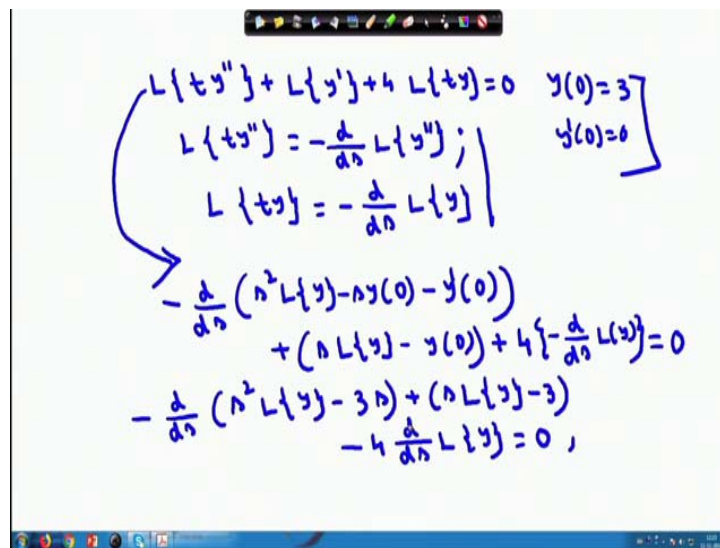 L{ty''} + L{y'} + 4 L{ty} = 0 y(0) = 3
L{ty''} = - d/ds L{y''} ; y'(0) = 0
L{ty} = - d/ds L{y}
- d/ds (s² L{y} - s y(0) - y'(0))
+ (s L{y} - y(0)) + 4{- d/ds L(y)} = 0
- d/ds (s² L{y} - 3s) + (s L{y} - 3)
- 4 d/ds L{y} = 0 ,